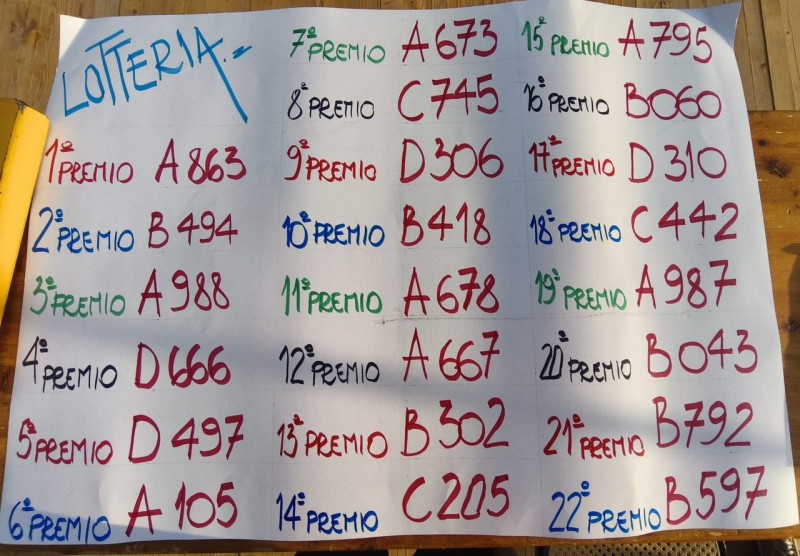 LOTTERIA
1º PREMIO A 863
2º PREMIO B 494
3º PREMIO A 988
4º PREMIO D 666
5º PREMIO D 497
6º PREMIO A 105
7º PREMIO A 673
8º PREMIO C 745
9º PREMIO D 306
10º PREMIO B 418
11º PREMIO A 678
12º PREMIO A 667
13º PREMIO B 302
14º PREMIO C 205
15º PREMIO A 795
16º PREMIO B 060
17º PREMIO D 310
18º PREMIO C 442
19º PREMIO A 987
20º PREMIO B 043
21º PREMIO B 792
22º PREMIO B 597